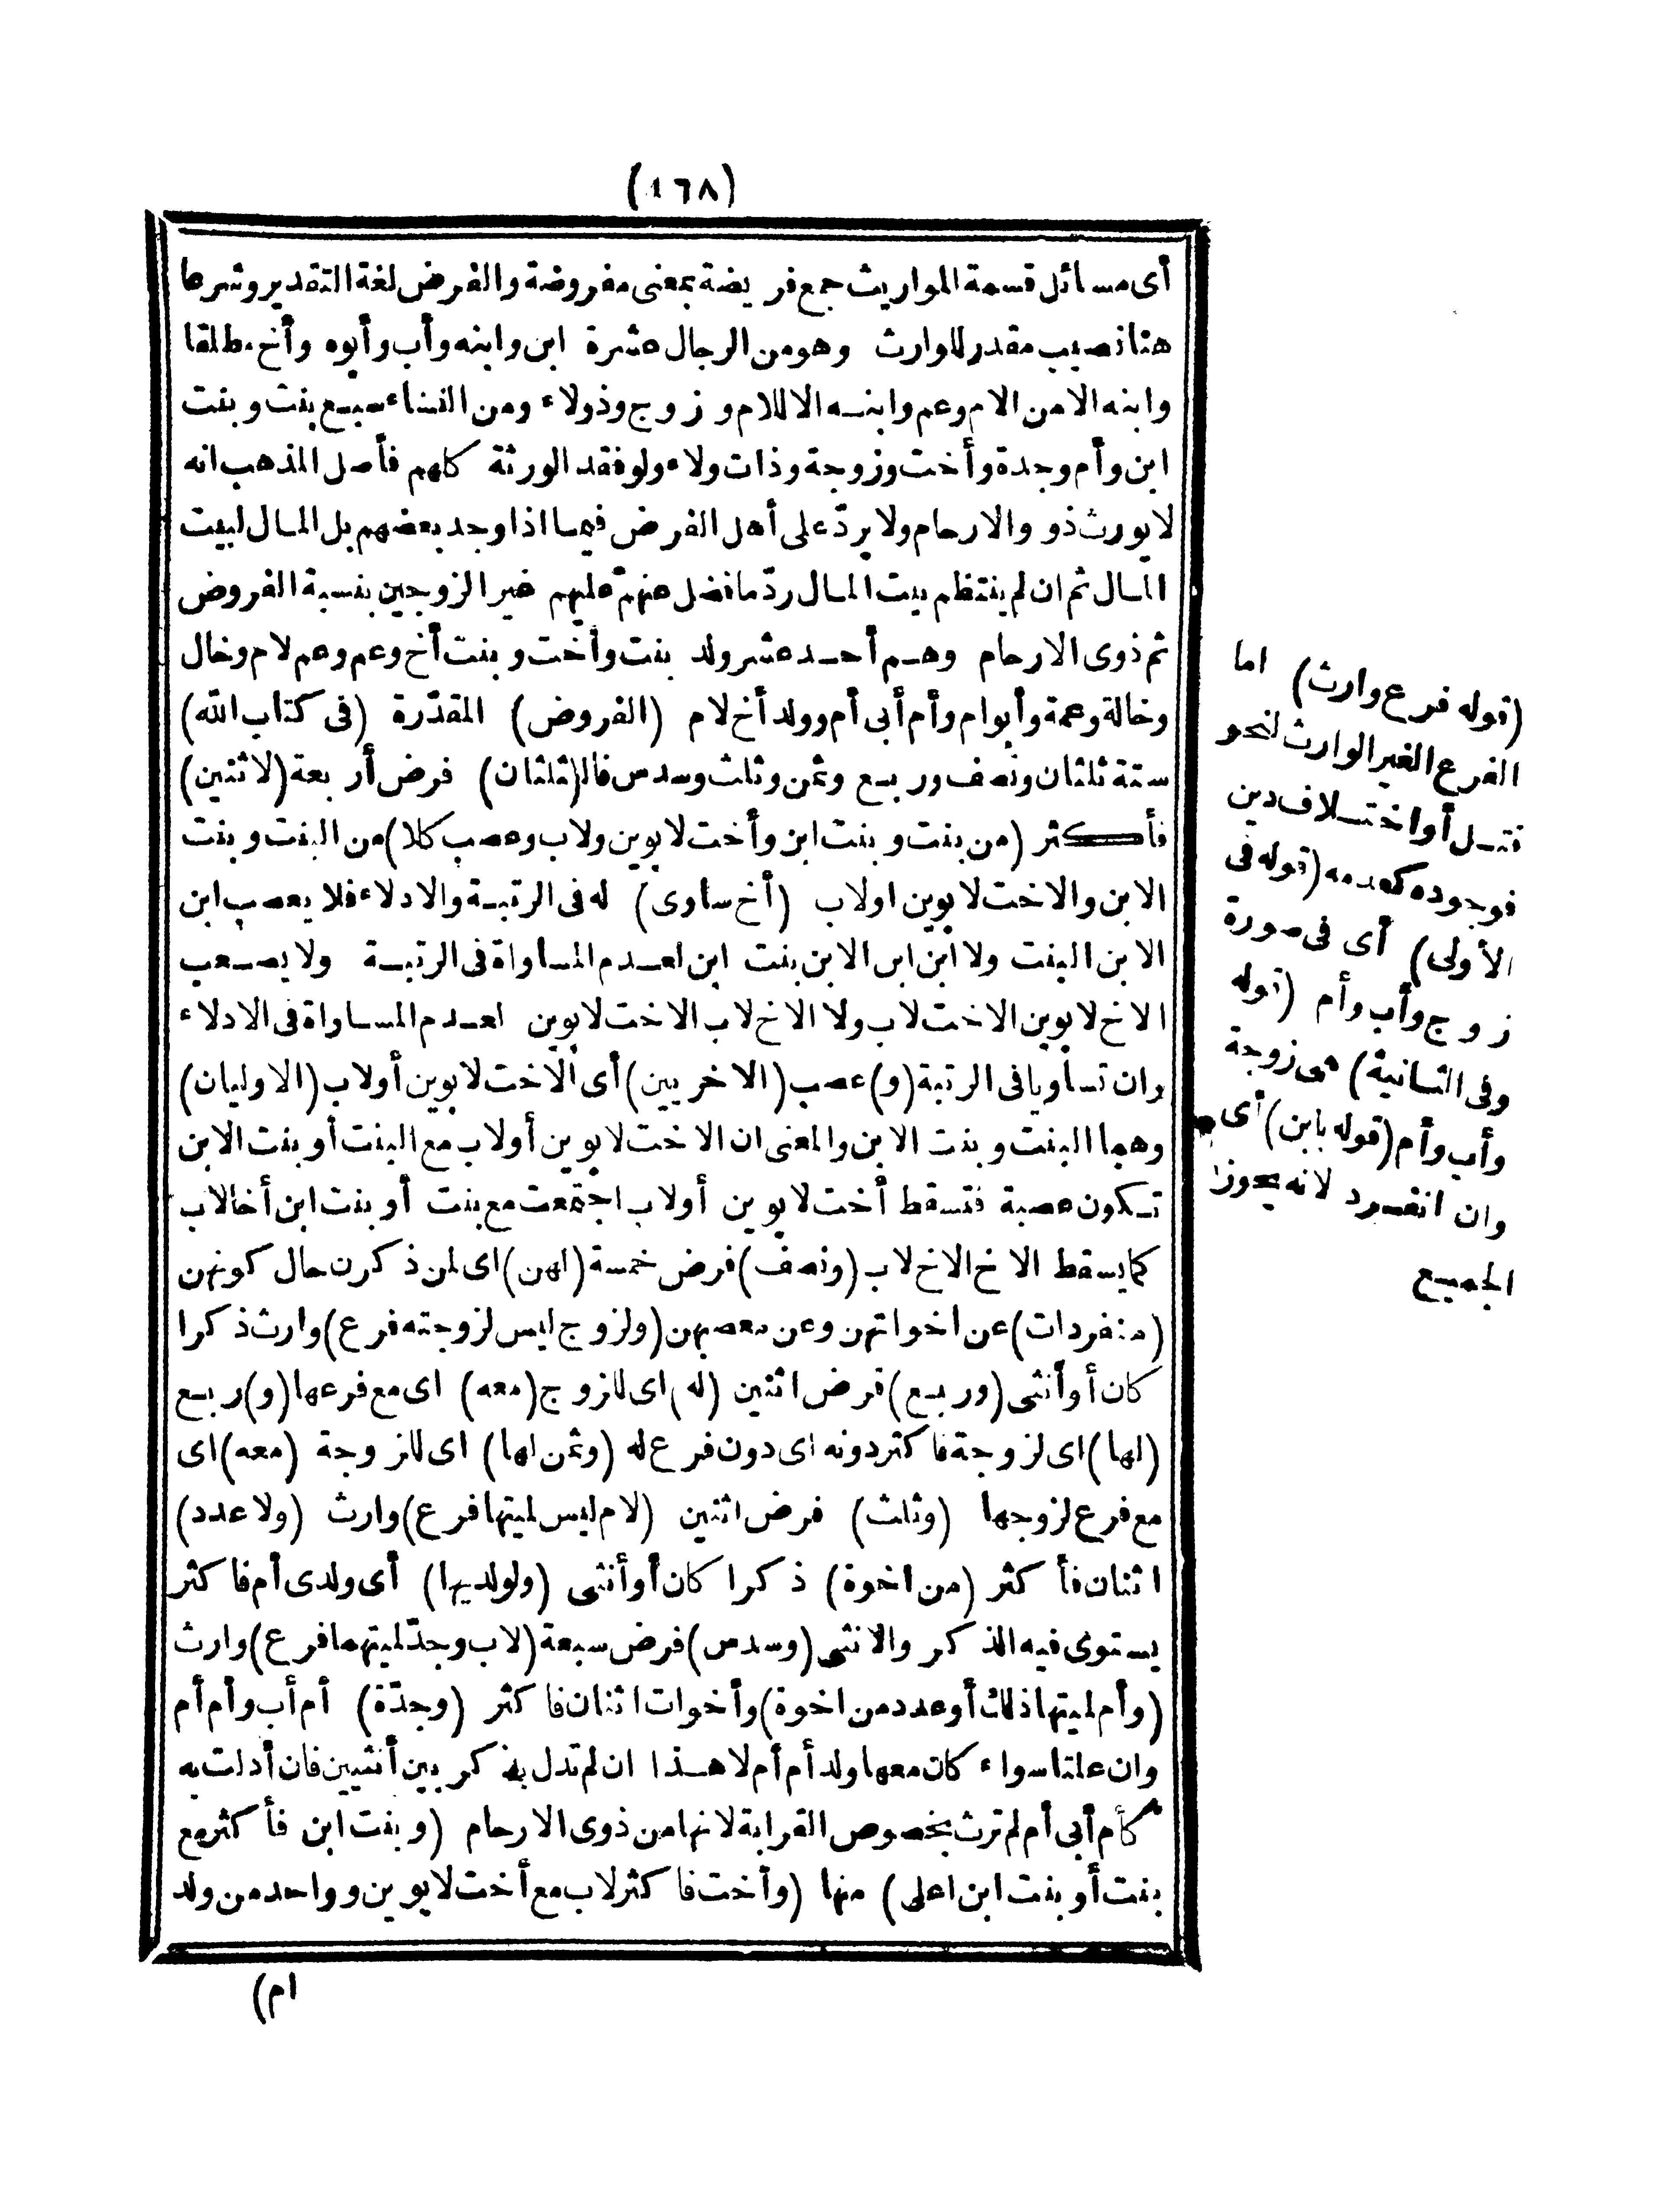 (١٦٨)
أى مسائل قسمة المواريث جمع فريضة بمعنى مفروضة والفرض لغة التقدير وشرعا
هنا نصيب مقدر للوارث وهو من الرجال عشرة ابن وابنه وأب وأبوه وأخ مطلقا
وابنه الا من الام وعم وابنه الا للام وزوج وذو ولاء ومن النساء سبع بنت وبنت
ابن وأم وجدة وأخت وزوجة وذات ولاء ولو فقد الورثة كلهم فأصل المذهب انه
لا يورث ذوو الارحام ولا يردّ على أهل الفرض فيما اذا وجد بعضهم بل المال لبيت
المال ثم ان لم ينتظم بيت المال ردّ ما فضل عنهم عليهم غير الزوجين بنسبة الفروض
ثم ذوى الارحام وهم أحد عشر ولد بنت وأخت وبنت أخ وعم وعم لام وخال
وخالة وعمة وأبو ام وأم أبى أم وولد أخ لام (الفروض) المقدّرة (فى كتاب الله)
ستة ثلثان ونصف وربع وثمن وثلث وسدس فال(ثلثان) فرض أربعة (لاثنين)
فأكثر (من بنت وبنت ابن وأخت لابوين ولاب وعصب كلا) من البنت وبنت
الابن والاخت لابوين اولاب (أخ ساوى) له فى الرتبة والادلاء فلا يعصب ابن
الابن البنت ولا ابن ابن الابن بنت ابن لعدم المساواة فى الرتبة ولا يصعب
الاخ لابوين الاخت لاب ولا الاخ لاب الاخت لابوين لعدم المساواة فى الادلاء
وان تساويا فى الرتبة (و) عصب (الاخريين) أى الاخت لابوين أولاب (الاوليان)
وهما البنت وبنت الابن والمعنى ان الاخت لابوين أولاب مع البنت أو بنت الابن
تكون عصبة فتسقط أخت لابوين أولاب اجتمعت مع بنت أو بنت ابن أخا لاب
كما يسقط الاخ الاخ لاب (ونصف) فرض خمسة (لهن) اى لمن ذكرن حال كونهن
(منفردات) عن اخواتهن وعن معصبهن (ولزوج ليس لزوجته فرع) وارث ذكرا
كان أو أنثى (وربع) فرض اثنين (له) اى للزوج (معه) اى مع فرعها (و) ربع
(لها) اى لزوجة فاكثر دونه اى دون فرع له (وثمن لها) اى للزوجة (معه) اى
مع فرع لزوجها (وثلث) فرض اثنين (لام ليس لميتها فرع) وارث (ولا عدد)
اثنان فأكثر (من اخوة) ذكرا كان أو أنثى (ولولديها) أى ولدى أم فاكثر
يستوى فيه الذكر والانثى (وسدس) فرض سبعة (لاب وجدّ لميتهما فرع) وارث
(وأم لميتها ذلك أو عدد من اخوة) وأخوات اثنان فاكثر (وجدّة) أم أب وأم أم
وان علتا سواء كان معها ولد أم أم لا هذا ان لم تدل بذكر بين أنثيين فان أدلت به
كأم أبى أم لم ترث بخصوص القرابة لانها من ذوى الارحام (وبنت ابن فأكثر مع
بنت أو بنت ابن اعلى) منها (وأخت فاكثر لاب مع أخت لابوين وواحد من ولد
ام)
(قوله فرع وارث) اما
الفرع الغير الوارث لنحو
قتل أو اختلاف دين
فوجوده كعدمه (قوله فى
الأولى) أى فى صورة
زوج وأب وأم (قوله
وفى الثانية) هى زوجة
وأب وأم (قوله بابن) أى
وان انفرد لانه يحوز
الجميع